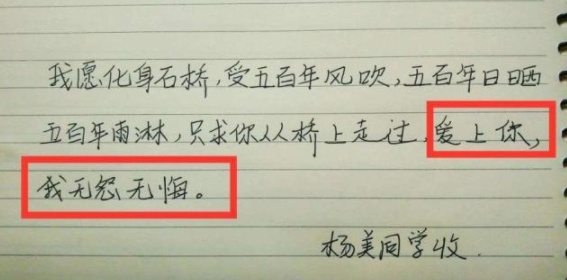 我愿化身石桥,受五百年风吹,五百年日晒
五百年雨淋,只求你从桥上走过,爱上你,
我无怨无悔。
杨美同学收.